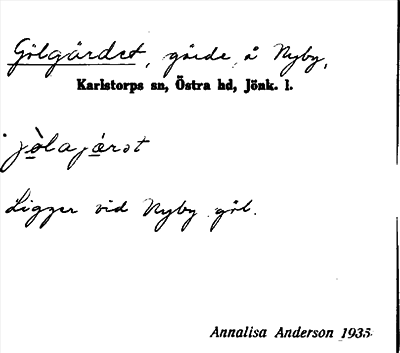 Gölgärdet, gärde å Nyby,
Karlstorps sn, Östra hd, Jönk. l.
jòlajárət
Ligger vid Nyby göl.
Annalisa Anderson 1935.